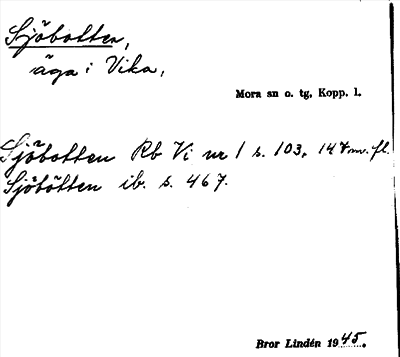 Sjöbotten,
äga i Vika,
Mora sn o. tg, Kopp. l.
Sjöbotten Rb Vi nr 1 s. 103, 147 m. fl.
Sjöbötten ib. s. 467.
Bror Lindén 1945.